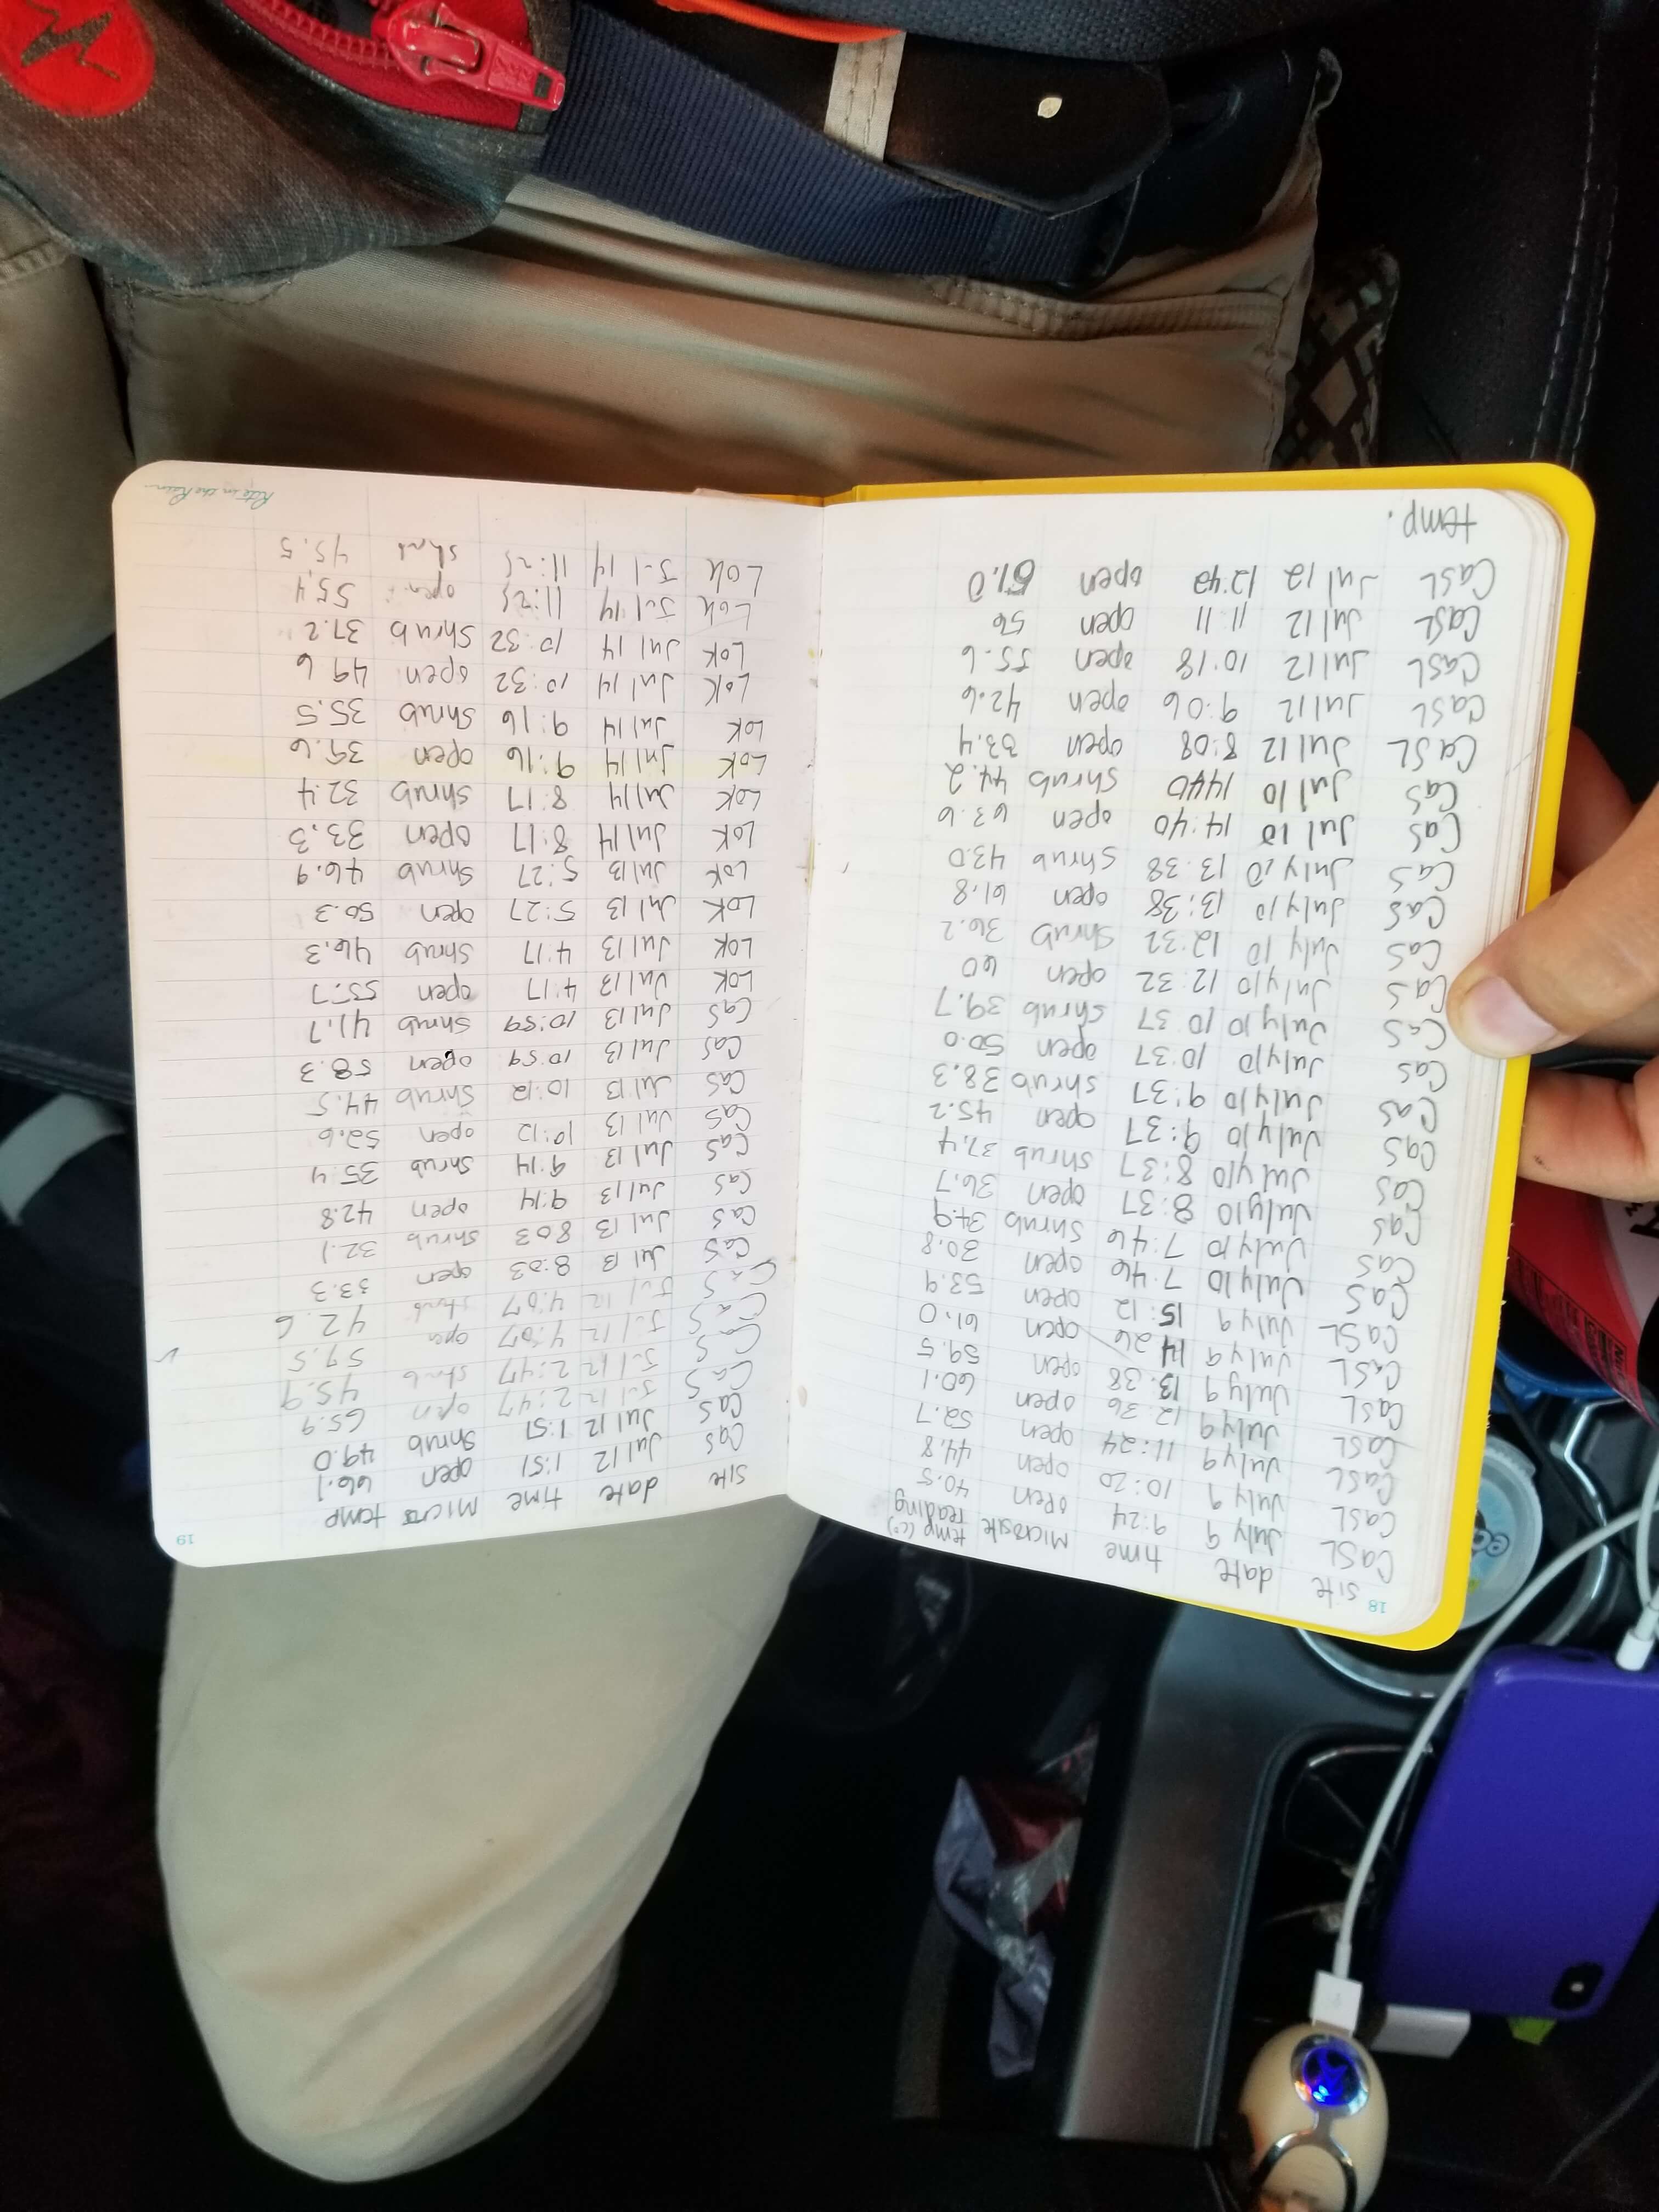 18
site date time Microsite temp (c°) reading
CaSL July 9 9:24 open 40.5
CaSL July 9 10:20 open 44.8
CaSL July 9 11:24 open 52.7
CaSL July 9 12:36 open 60.1
CaSL July 9 13:38 open 59.5
CaSL July 9 14 26 open 61.0
CaSL July 9 15 12 open 53.9
CaS July 10 7:46 open 30.8
CaS July 10 7:46 shrub 34.9
CaS July 10 8:37 open 36.7
CaS July 10 8:37 shrub 37.4
CaS July 10 9:37 open 45.2
CaS July 10 9:37 shrub 38.3
CaS July 10 10:37 open 50.0
CaS July 10 10 37 shrub 39.7
CaS July 10 12:32 open 60
CaS July 10 12:32 shrub 36.2
CaS July 10 13:38 open 61.8
CaS July 10 13:38 shrub 43.0
CaS Jul 10 14:40 open 63.6
CaS Jul 10 1440 shrub 44.2
CaSL Jul 12 8:08 open 33.4
CaSL Jul 12 9:06 open 42.6
CaSL Jul 12 10:18 open 55.6
CaSL Jul 12 11:11 open 56
CaSL Jul 12 12:42 open 61.0
temp.
19
site date time micro temp
CaS Jul 12 1:51 open 66.1
CaS Jul 12 1:51 shrub 49.0
CaS Jul 12 2:47 open 65.9
CaS Jul 12 2:47 shrub 45.9
CaS Jul 12 4:07 open 57.5
CaS Jul 12 4:07 shrub 42.6
CaS Jul 13 8:03 open 33.3
CaS Jul 13 803 shrub 32.1
CaS Jul 13 9:14 open 42.8
CaS Jul 13 9:14 shrub 35.4
CaS Jul 13 10:12 open 52.6
CaS Jul 13 10:12 shrub 44.5
CaS Jul 13 10:59 open 58.3
CaS Jul 13 10:59 shrub 41.7
LOK Jul 13 4:17 open 55.7
LOK Jul 13 4:17 shrub 46.3
LOK Jul 13 5:27 open 50.3
LOK Jul 13 5:27 shrub 46.9
LOK Jul 14 8:17 open 33.3
LOK Jul 14 8:17 shrub 32.4
LOK Jul 14 9:16 open 39.6
LOK Jul 14 9:16 shrub 35.5
LOK Jul 14 10:32 open 49.6
LOK Jul 14 10:32 shrub 37.2
LOK Jul 14 11:25 open 55.4
LOK Jul 14 11:25 shrub 45.5
Rite in the Rain